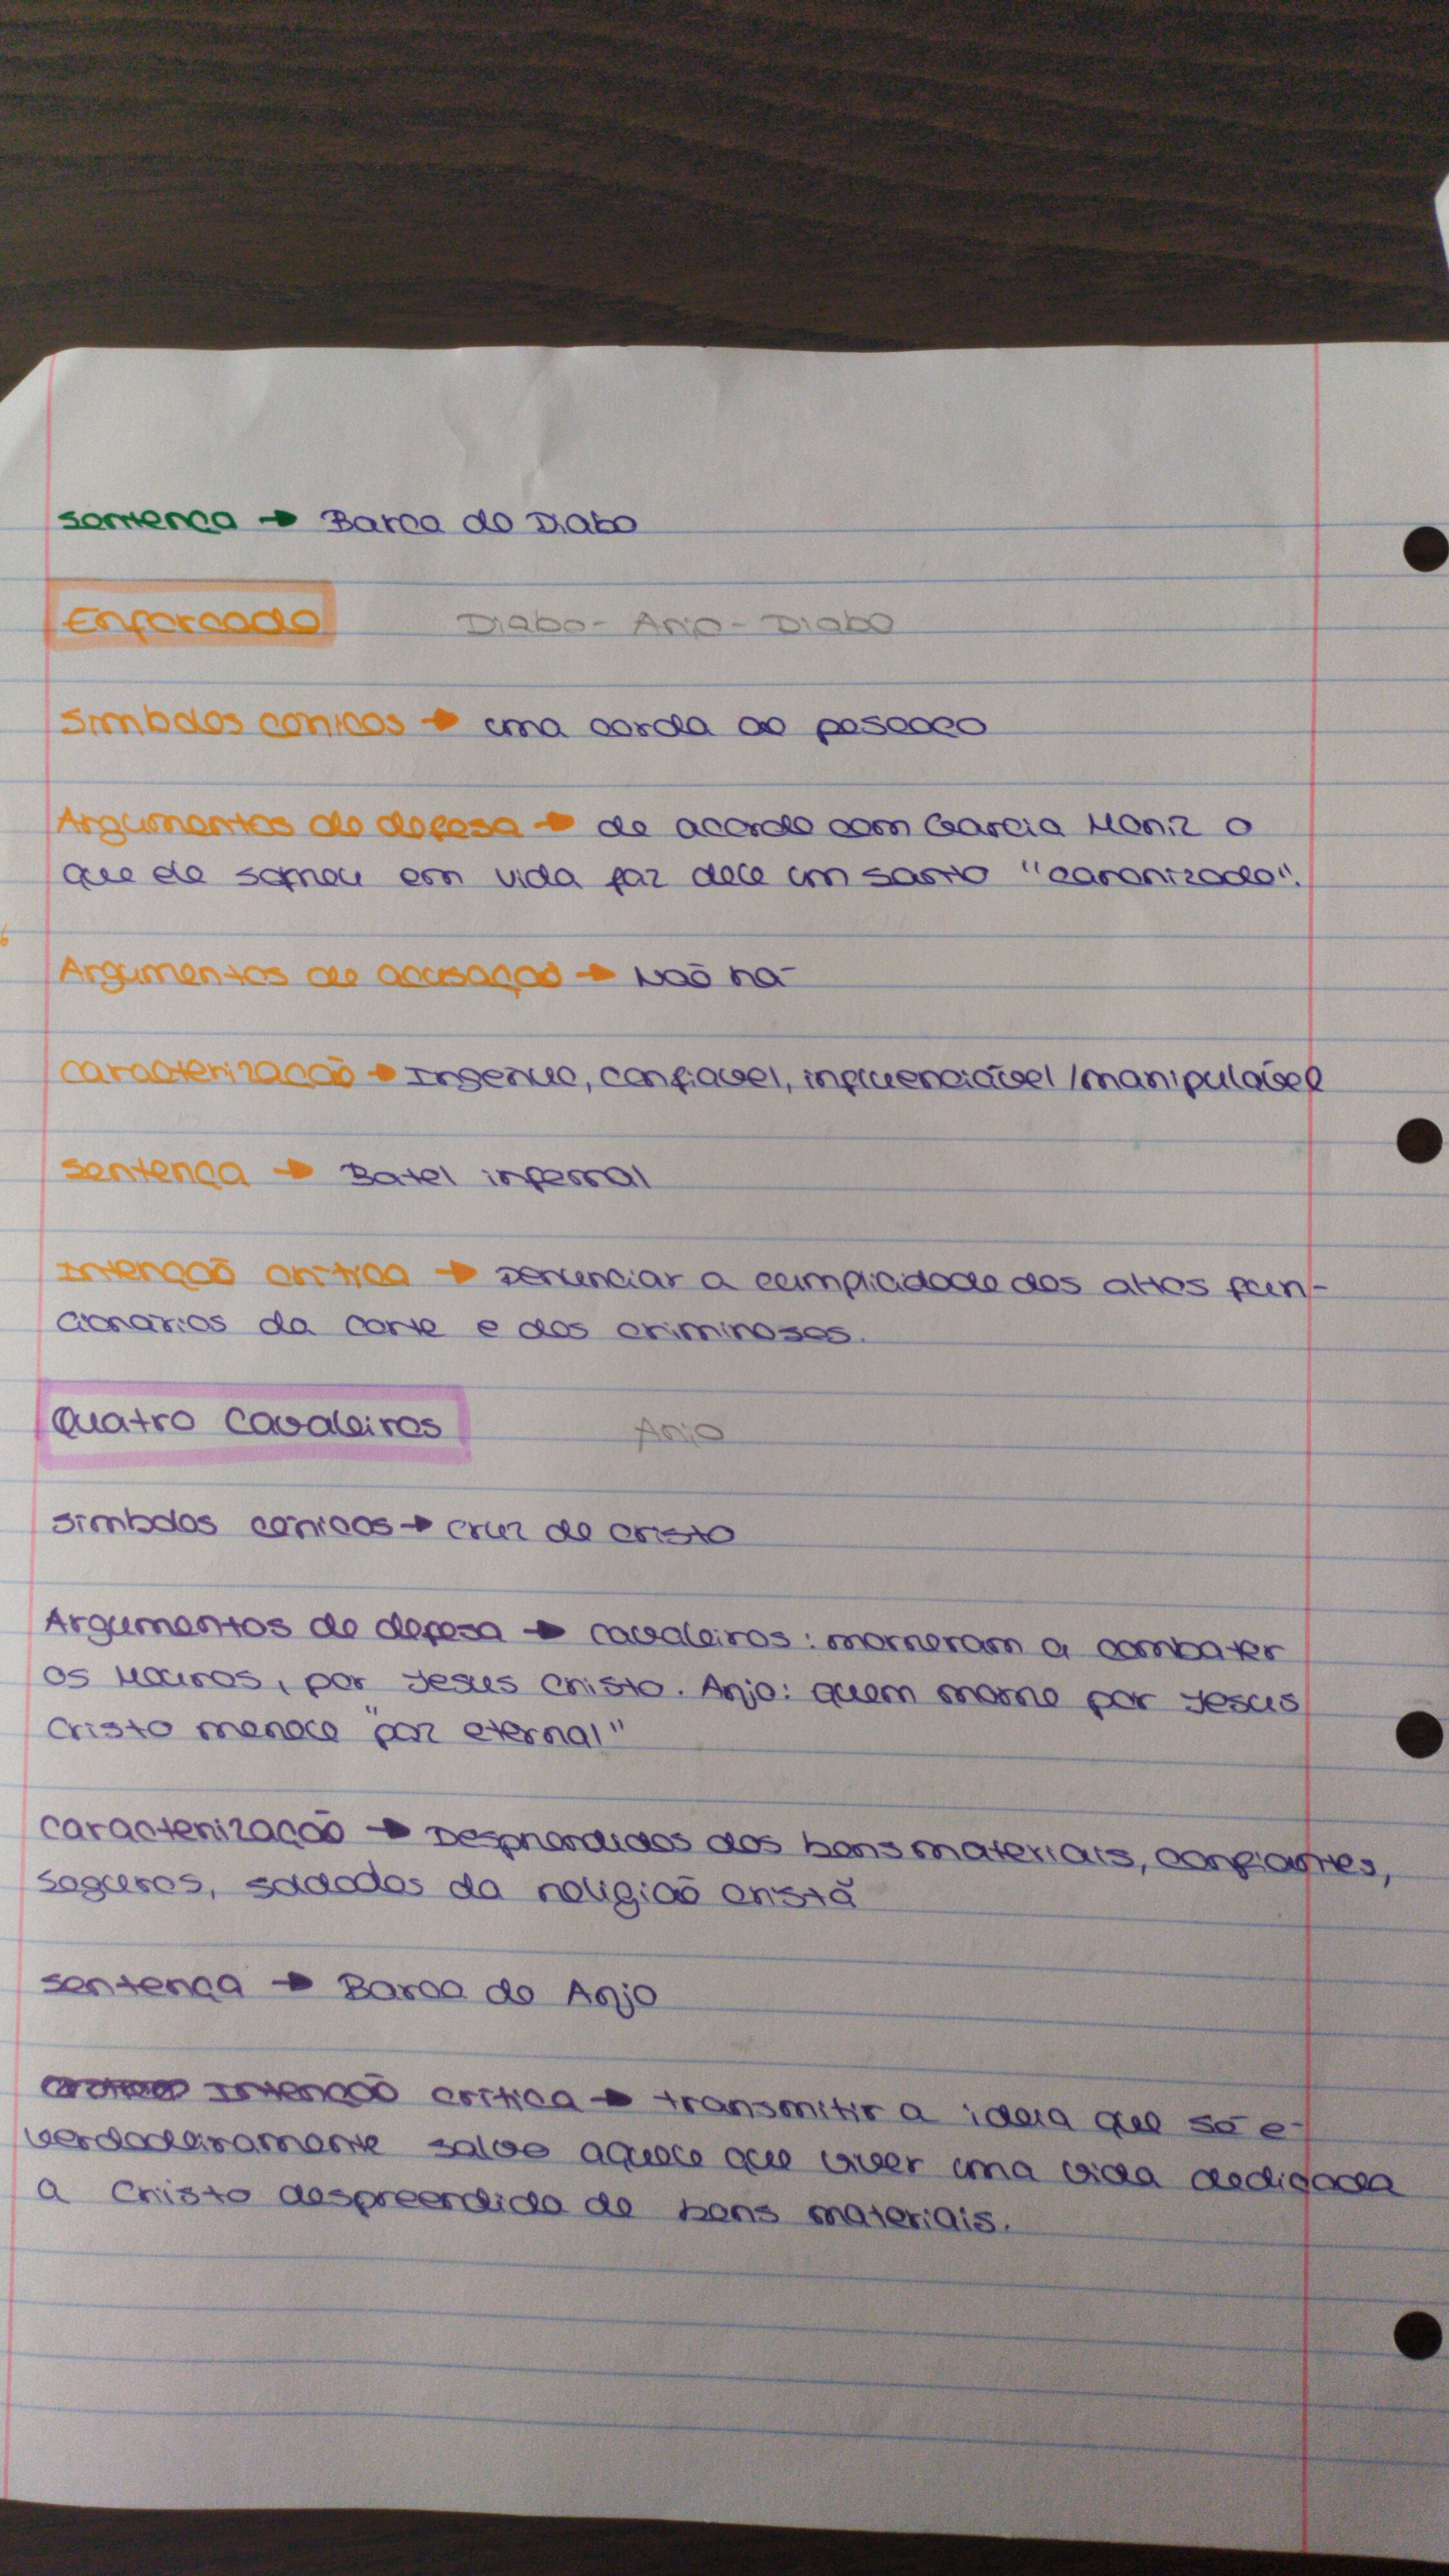 sentença → Barca do Diabo
Enforcado Diabo - Anjo - Diabo
Símbolos cénicos → uma corda ao pescoço
Argumentos de defesa → de acordo com Garcia Moniz o
que ele sofreu em vida faz dele um santo "canonizado".
Argumentos de acusação → Não há
Caracterização → Ingenuo, confiavel, influenciável / manipulável
Sentença → Batel infernal
Intenção crítica → Denunciar a cumplicidade dos altos fun-
cionários da corte e dos criminosos.
Quatro Cavaleiros Anjo
símbolos cénicos → cruz de cristo
Argumentos de defesa → cavaleiros: morreram a combater
os Mouros, por Jesus Cristo. Anjo: quem morre por Jesus
Cristo merece "paz eternal"
Caracterização → Desprendidos dos bens materiais, confiantes,
seguros, soldados da religião cristã
sentença → Barca do Anjo
Intenção crítica → transmitir a ideia que só é
verdadeiramente salvo aquele que viver uma vida dedicada
a Cristo despreendida de bens materiais.